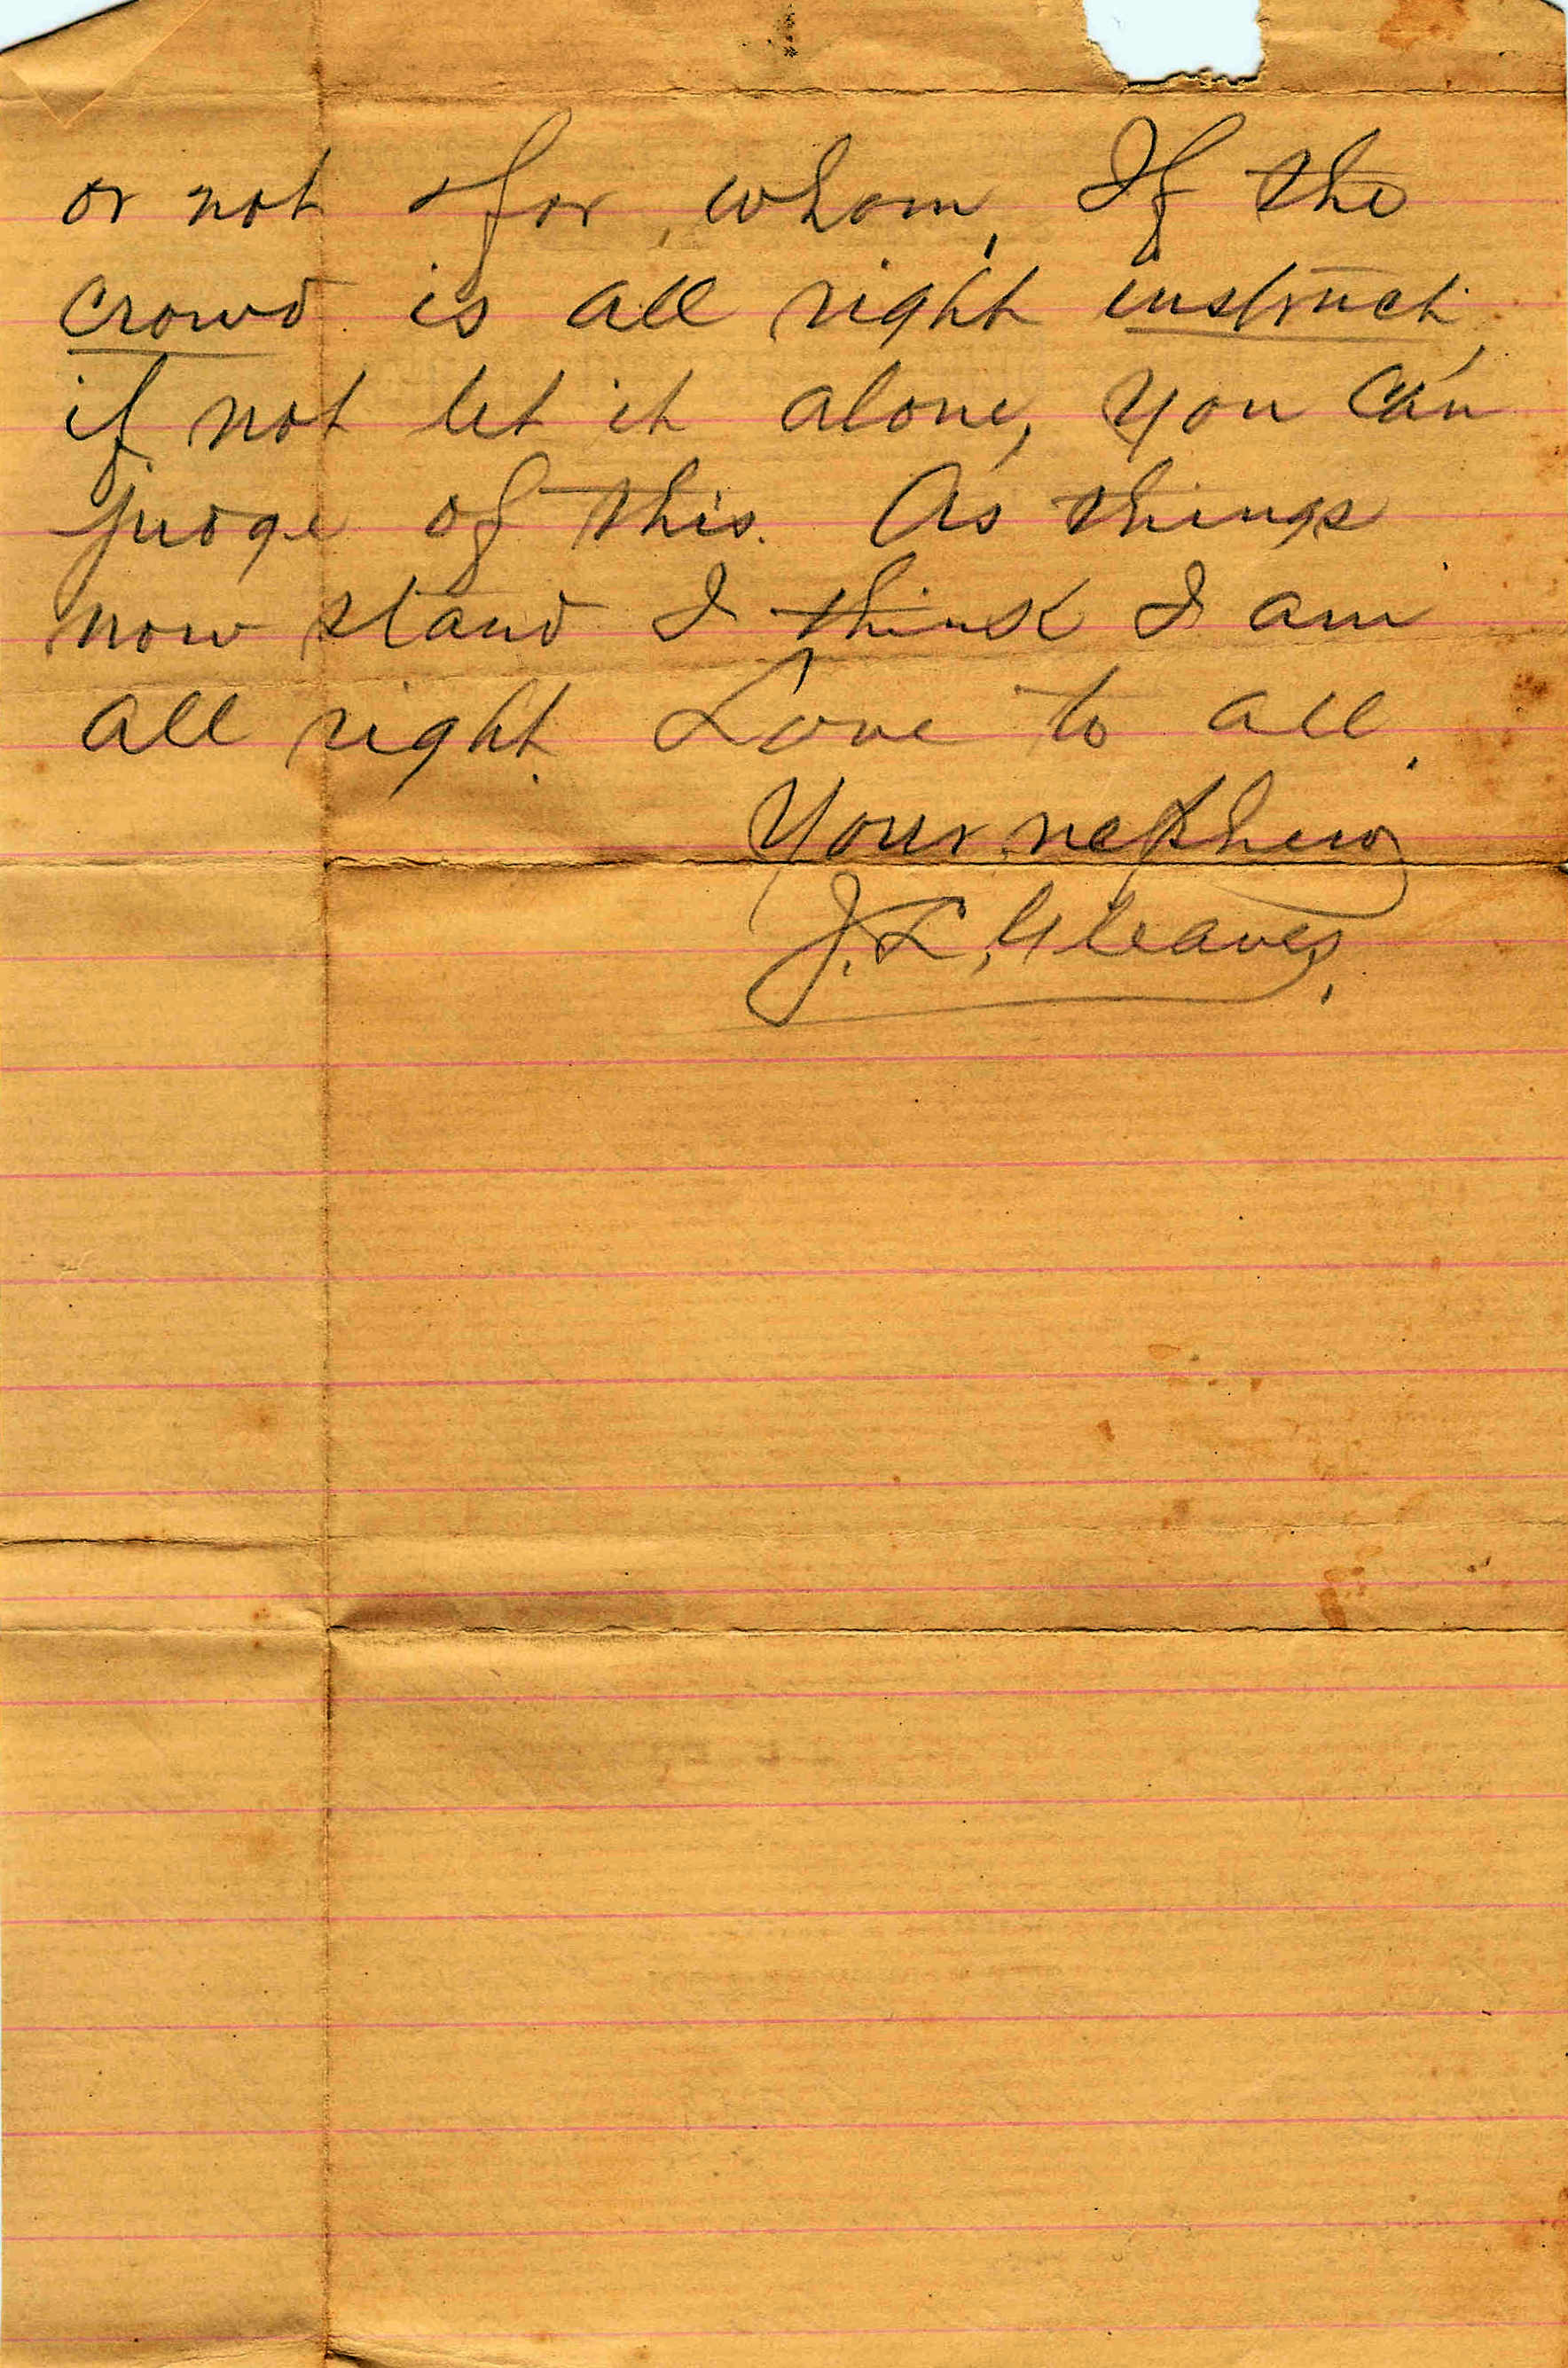 or not & for whom, If the
crowd is all right instruct,
if not let it alone, you can
judge of this. As things
now stand I think I am
all right. Love to all.
Your nephew
J. L. Gleaves.